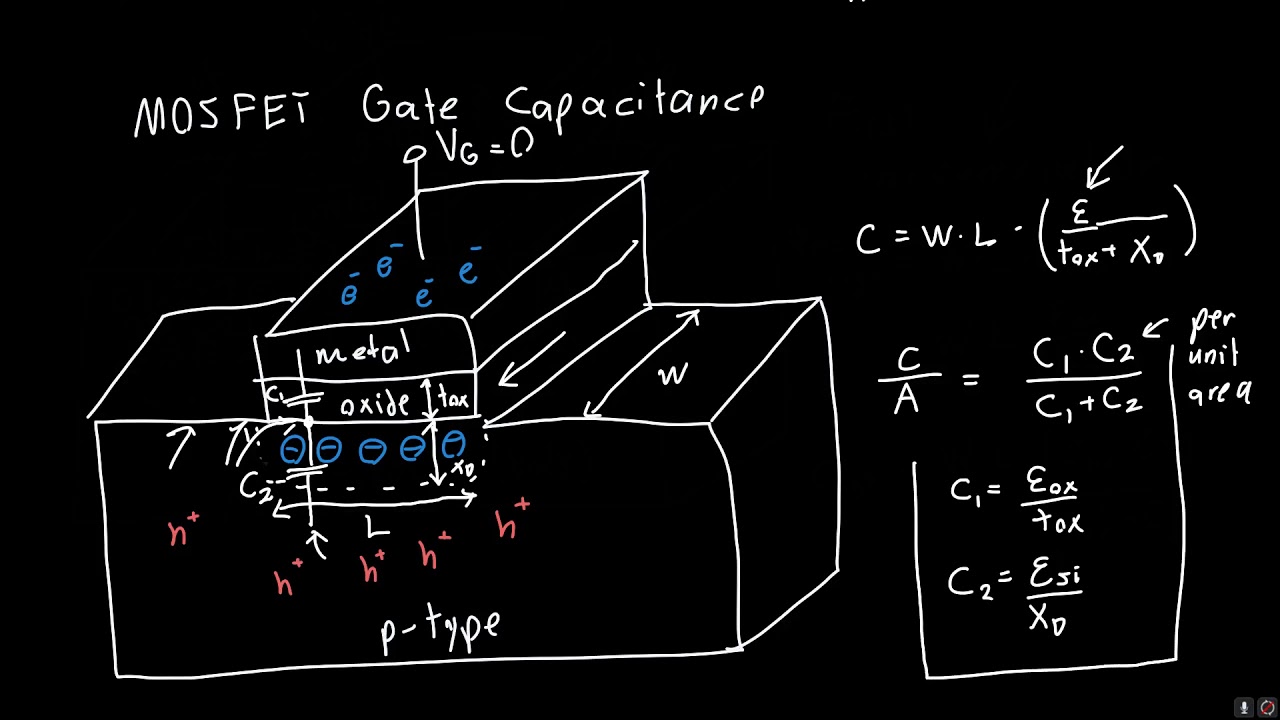 MOSFET Gate Capacitance
V_G = 0
e⁻ e⁻ e⁻ e⁻
metal
C₁ oxide t_ox
⊖ ⊖ ⊖ ⊖ ⊖
C₂ x_D
L
W
h⁺ h⁺ h⁺ h⁺ h⁺
p-type
C = W · L · (ε / (t_ox + X_D))
C / A = (C₁ · C₂) / (C₁ + C₂)
per
unit
area
C₁ = ε_ox / t_ox
C₂ = ε_si / X_D